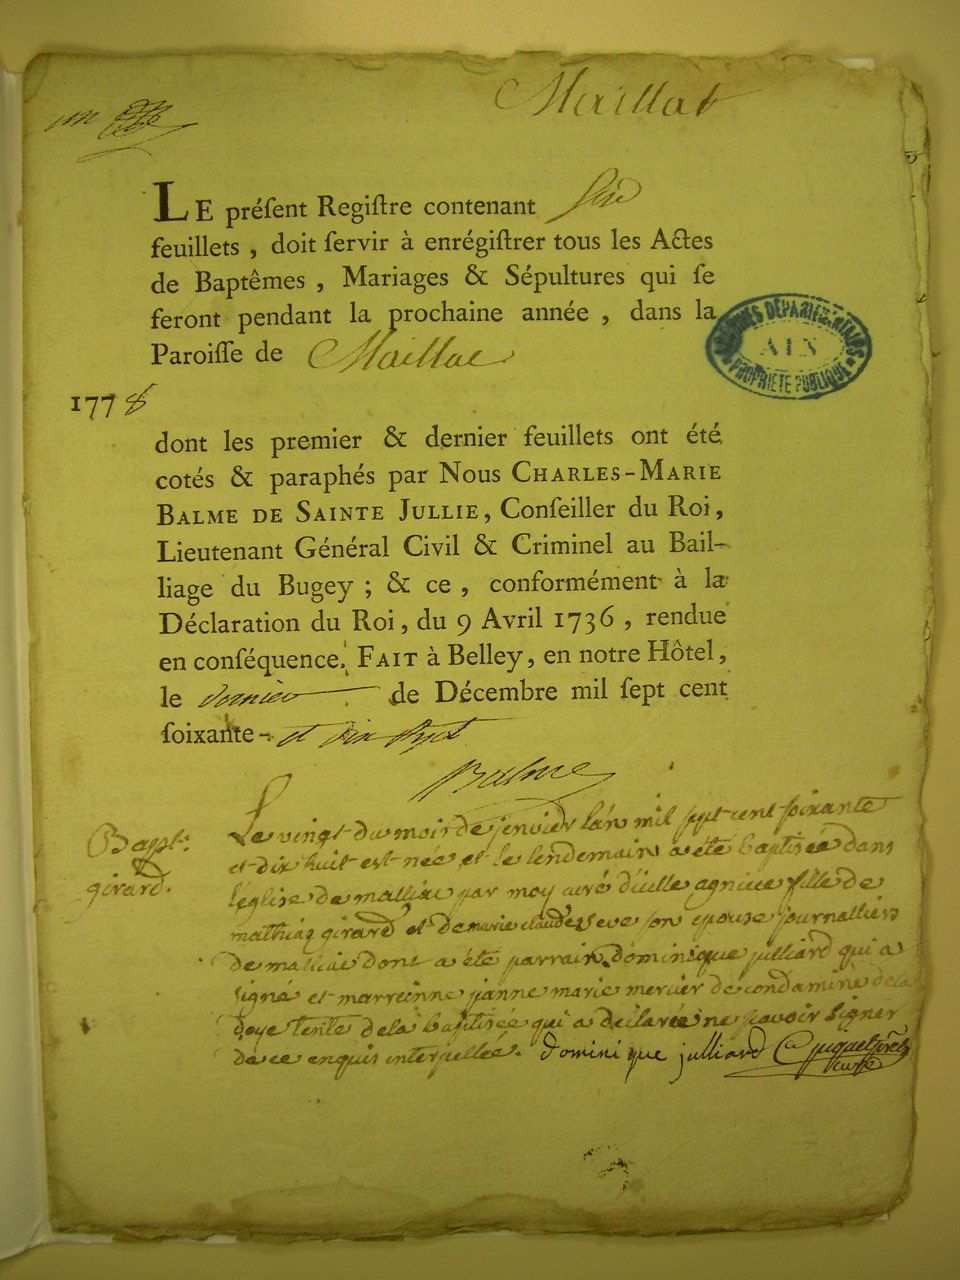 Maillat
LE préſent Regiſtre contenant Six
feuillets, doit ſervir à enrégiſtrer tous les Actes
de Baptêmes, Mariages & Sépultures qui ſe
feront pendant la prochaine année, dans la
Paroiſſe de Maillac
1778
ARCHIVES DÉPARTEMENTALES
AIN
PROPRIÉTÉ PUBLIQUE
dont les premier & dernier feuillets ont été
cotés & paraphés par Nous CHARLES-MARIE
BALME DE SAINTE JULLIE, Conſeiller du Roi,
Lieutenant Général Civil & Criminel au Bail-
liage du Bugey; & ce, conformément à la
Déclaration du Roi, du 9 Avril 1736, rendue
en conſéquence. FAIT à Belley, en notre Hôtel,
le dernier de Décembre mil ſept cent
ſoixante- et dix ſept
Balme
Bapt.
girard.
Le vingt du moir de jenvier l'an mil sept cent soixante
et dix huit est née et le lendemain a été baptisée dans
l'église de par moy curé d'icelle fille de
mathias girard et de marie claude Seve son epouse journalliers
de dont a été parrain dominique julliard qui a
signé et marreinne janne marie mercier de condamine de la
doye tente de la baptisée qui a declarée ne savoir signer
de ce enquis interpellée. dominique julliard
curé